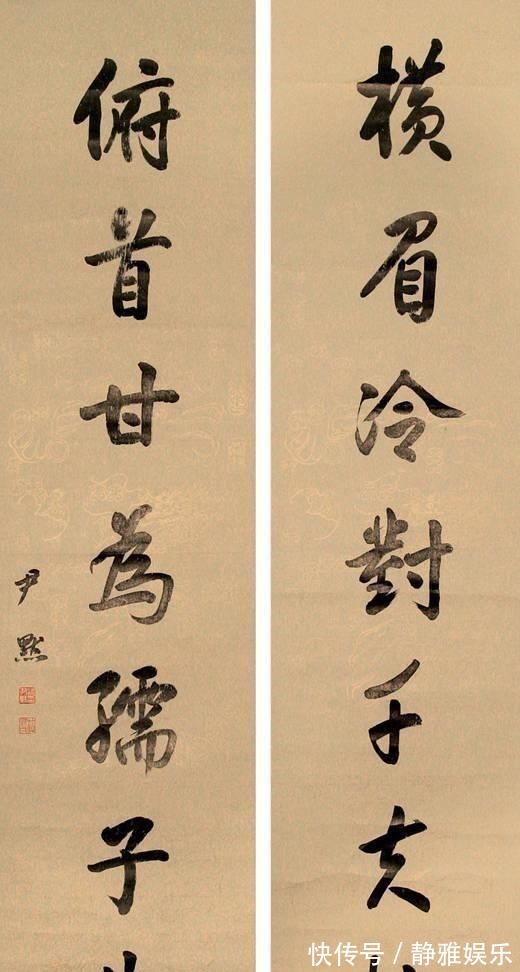 橫眉冷對千夫
俯首甘為孺子
尹默
快传号/静雅娱乐